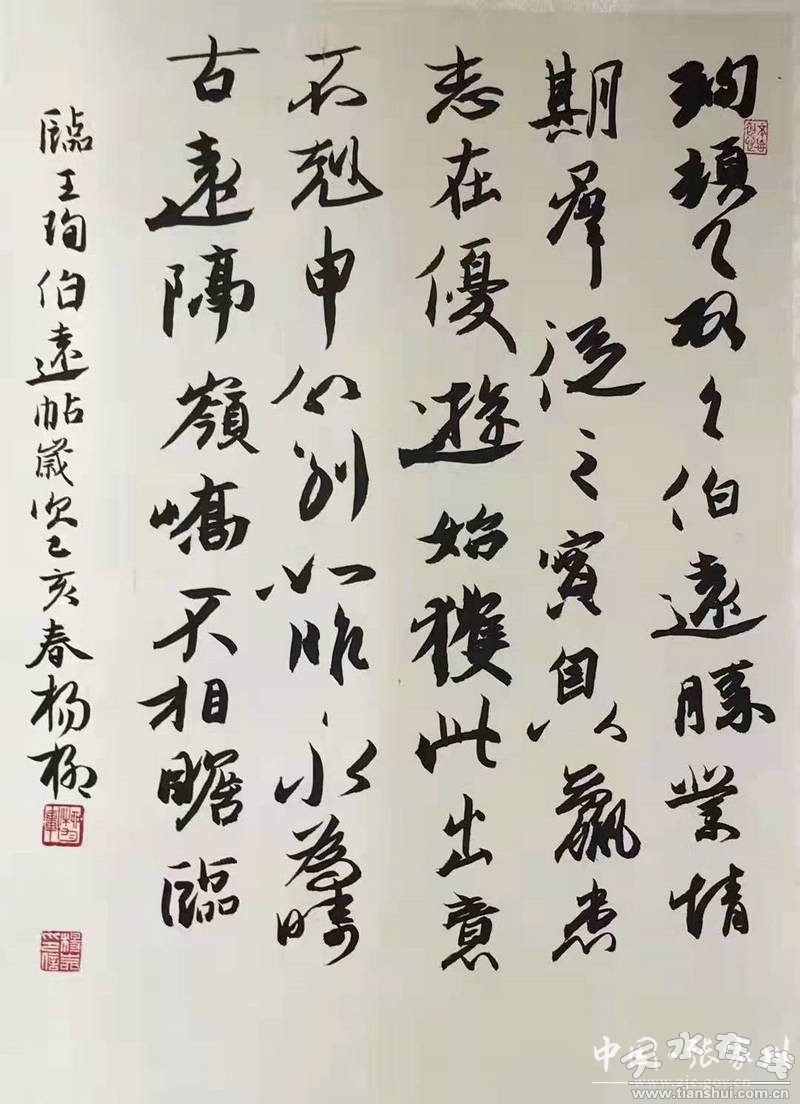 珣頓首頓首伯遠勝業情
期羣從之寶自以羸患
志在優遊始獲此出意
不剋申分别如昨永為疇
古遠隔嶺嶠不相瞻臨
臨王珣伯遠帖歲次己亥春杨柳
中国张家川
www.zjc.gov.cn
天水在线
www.tianshui.com.cn